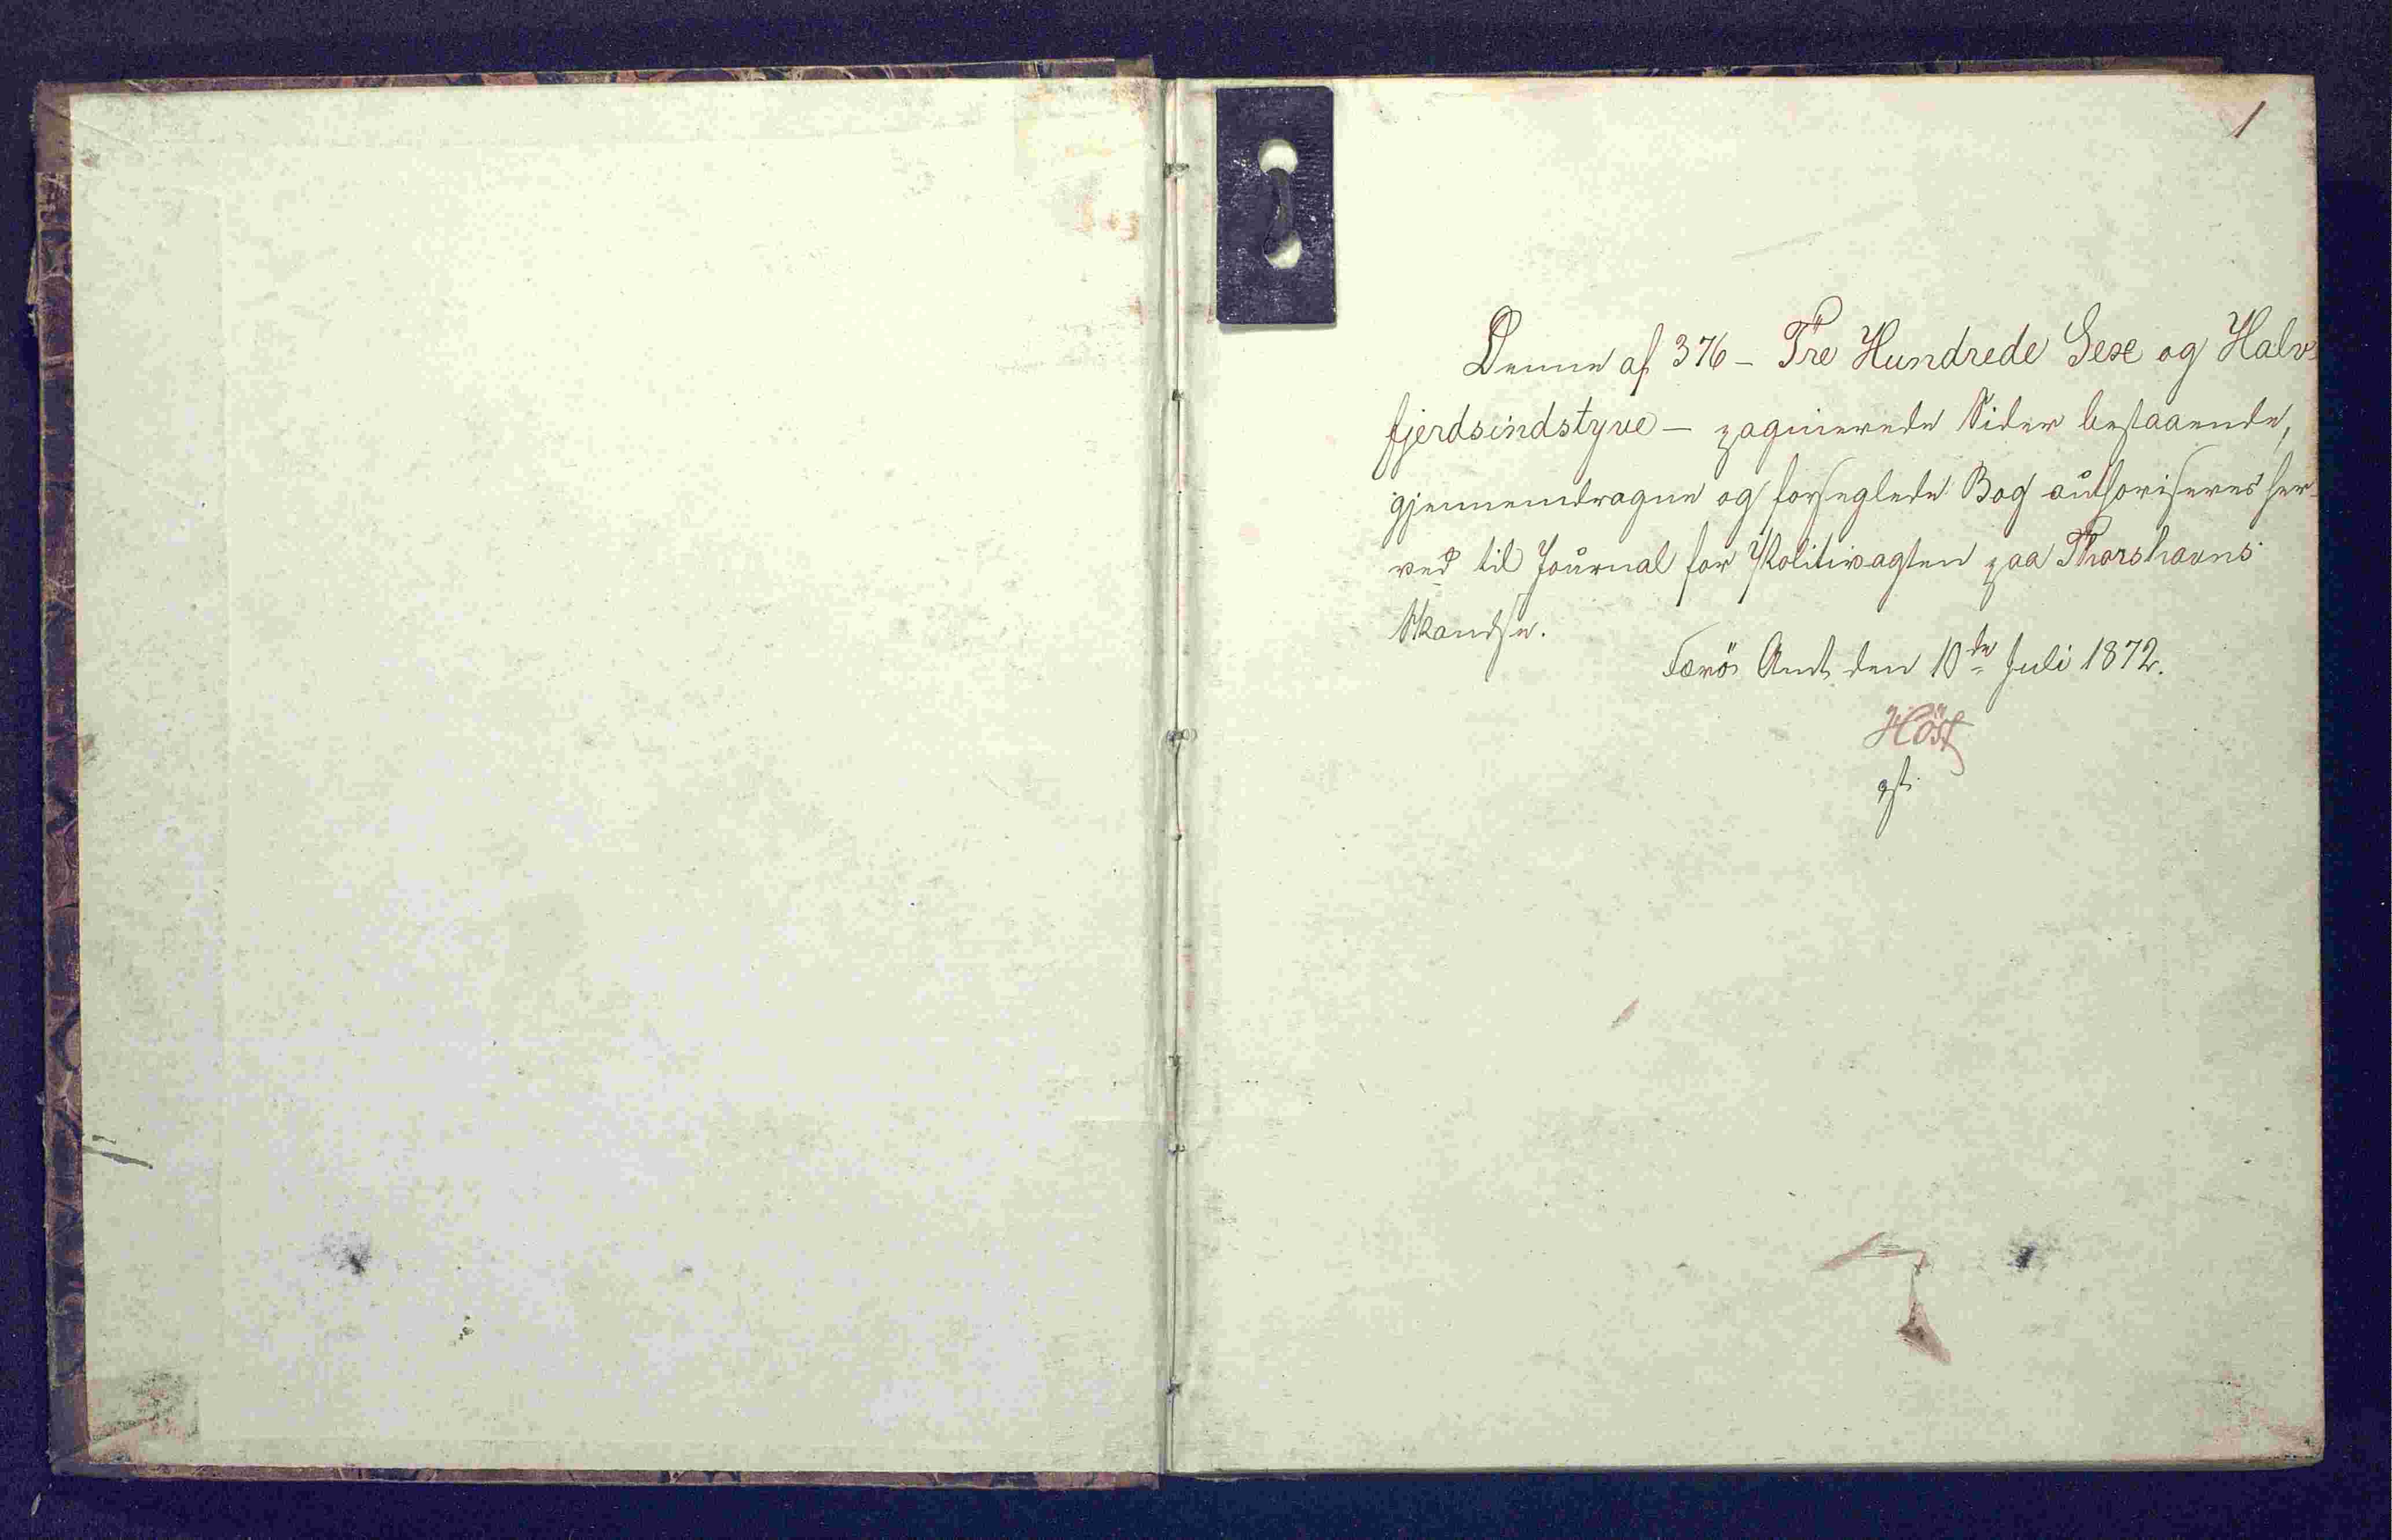 1
Denne af 376 – Tre Hundrede Sex og Halv-
fjerdsindstyve – paginerede Sider bestaaende,
gjennemdragne og forseglede Bog authoriseres her-
ved til Journal for Politivagten paa Thorshavns
Skandse.
Færö Amt den 10de Juli 1872.
Höst
cst.